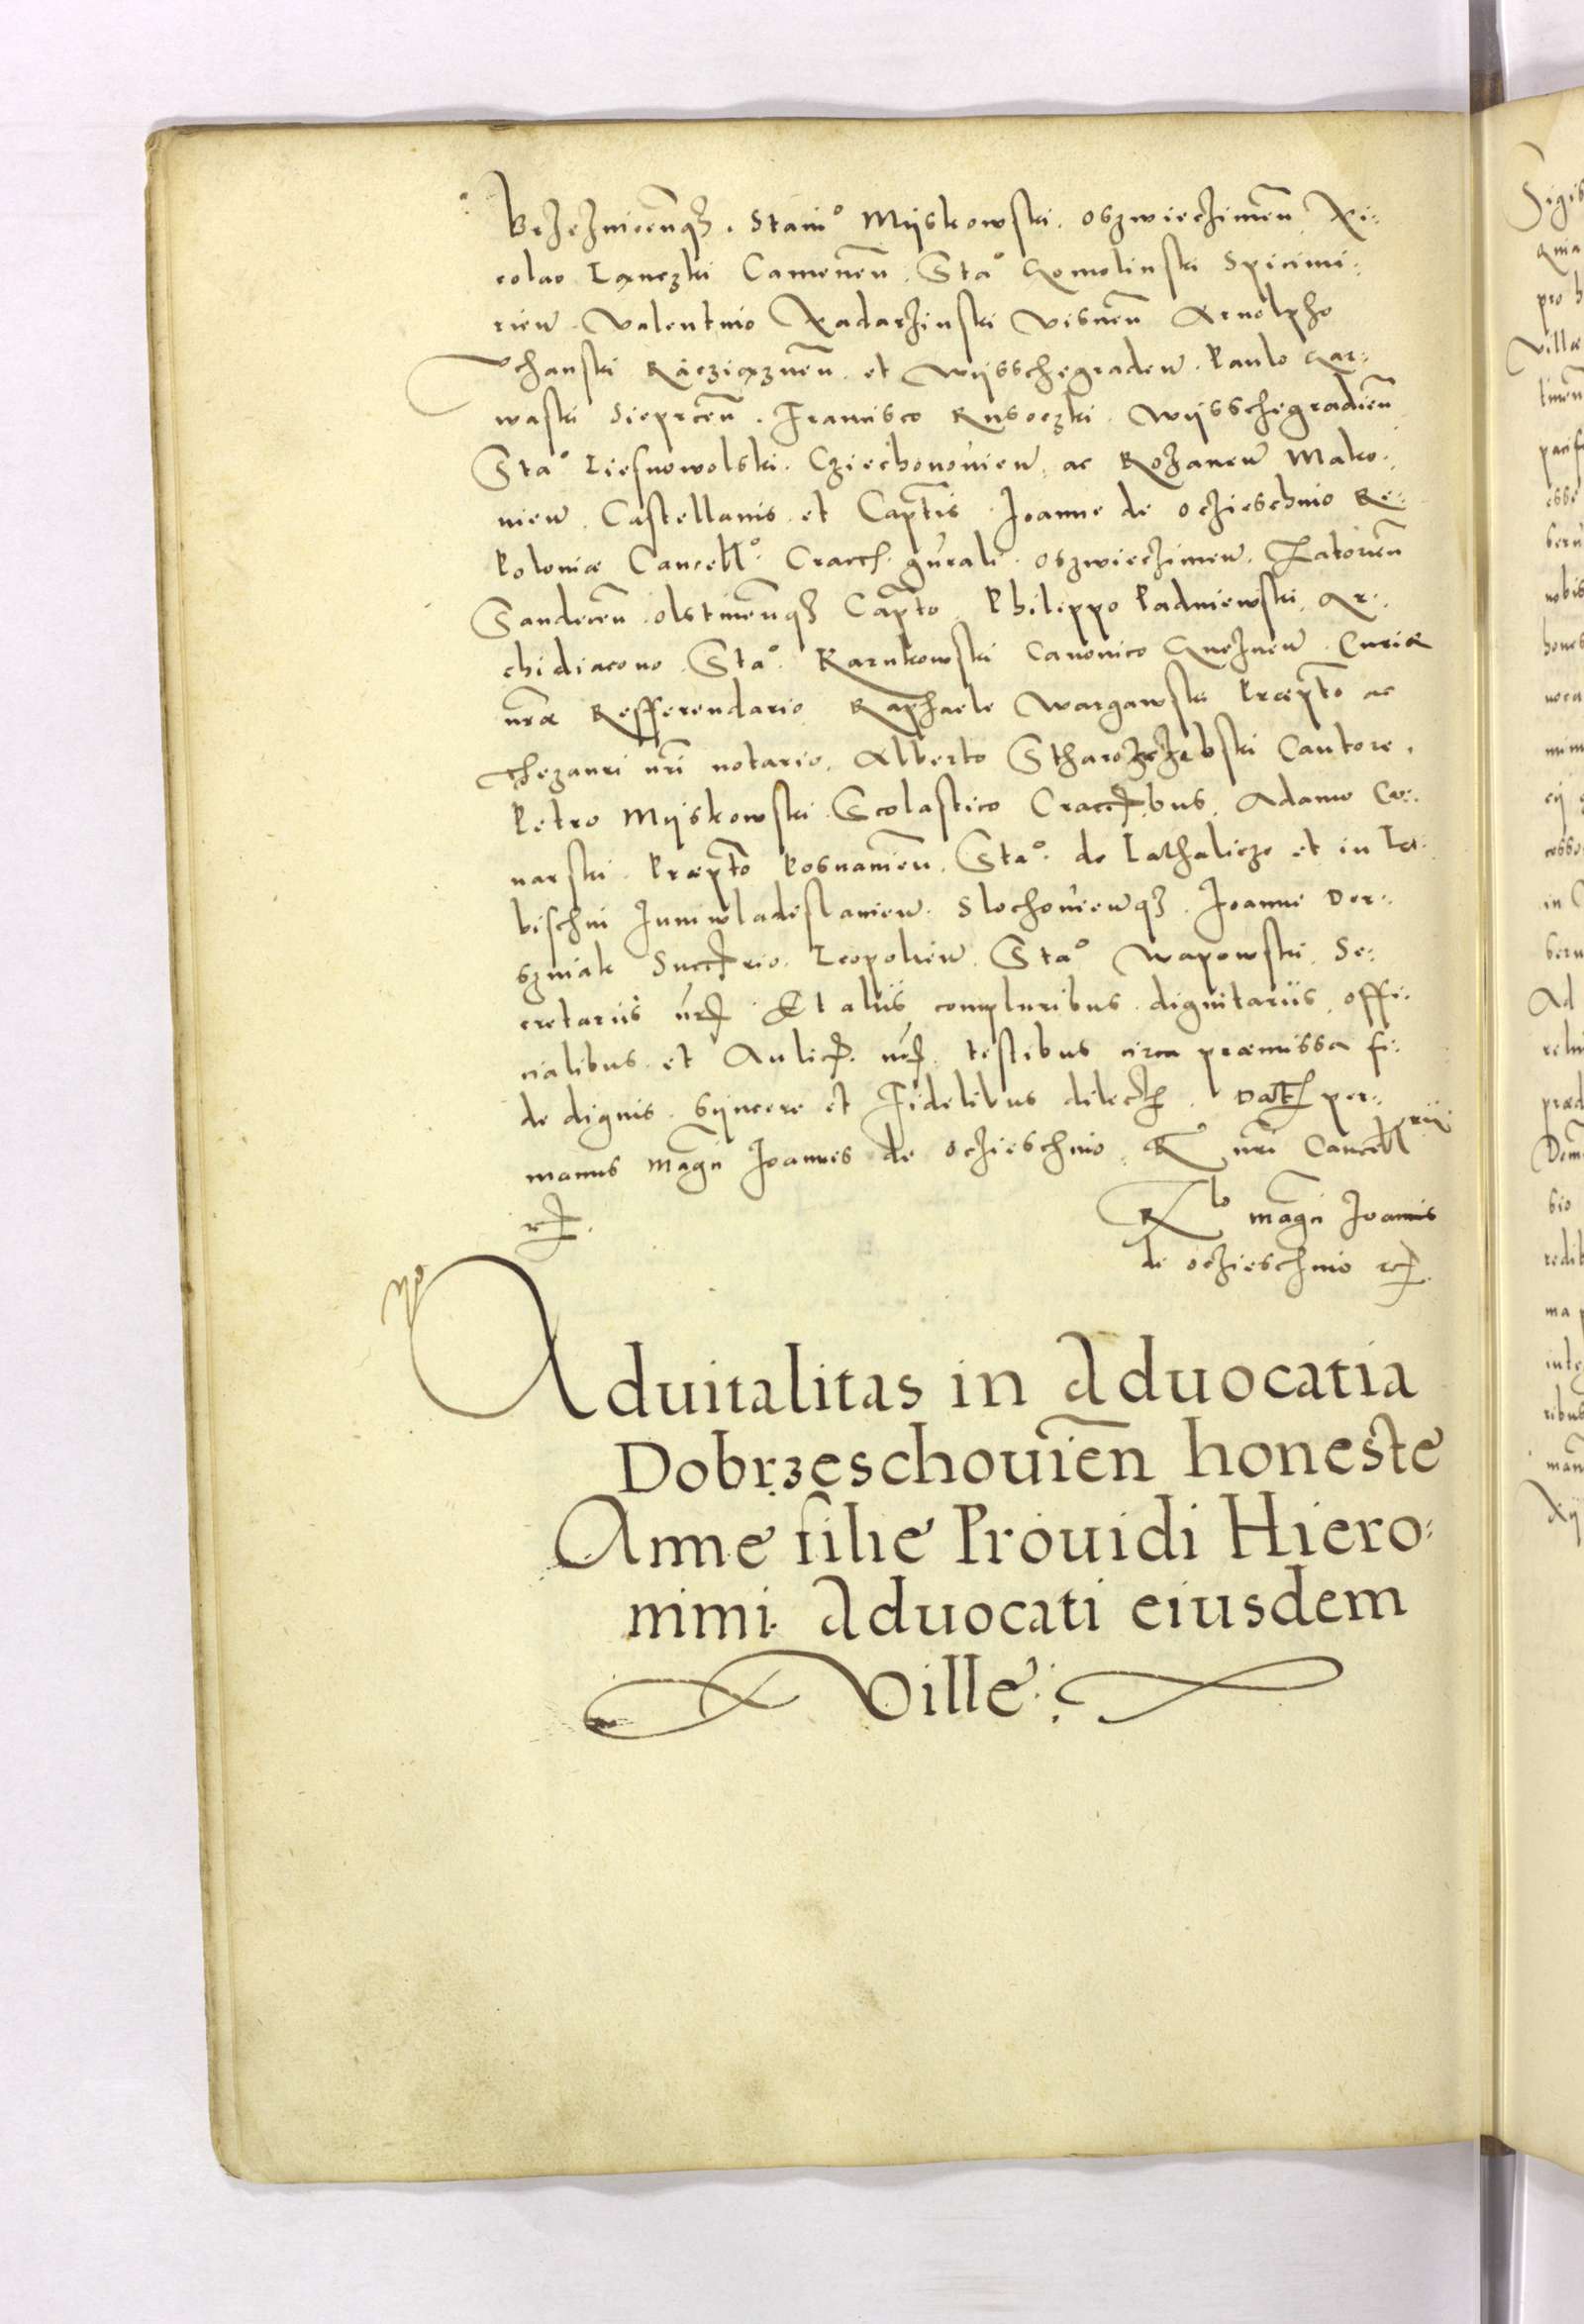 Brzeznicenq3. Stanio Myskowski. Oszwieczimen Ni:
colao Lanczki Camenen. Stao Gomolinski Spicimi:
rien. Valentino Nadarzinski Visnen Arnolpho
Vchanski Racziąznen. et Wyschegraden. Paulo Gar:
waski Sieprcen. Francisco Rusoczki. Wysschegradien
Stao Liesnowolski. Cziechonovien. ac Rozanen Mako:
nien. Castellanis. et Captis. Joanne de Oczieschnio Re:
Poloniæ Cancello. Cracc. gnrali. Oszwieczimen. Zatorien
Sandecen. Olstinenq3 Capto. Philippo Padniewski. Ar:
chidiacono. Stao. Karnkowski Canonico Gneznen. Curiæ
nræ Refferendario Raphaele Wargawski Præpto ac
Thezauri nri notario. Alberto Starozrzebski Cantore.
Petro Myskowski. Scolastico Cracc.bus. Adamo Co:
narski. Præpto Posnanien. Stao. de Lathaliczo et in La:
bischin Juniwladislavien. Slochovienq3. Joanne Der:
szniak Succrio. Leopolien. Stao Wapowski. Se:
cretariis nr. Et aliis compluribus dignitariis. offi:
cialibus et Aulic. nr. testibus circa præmissa fi:
de dignis. Syncere et Fidelibus dilect. Dat per:
manus magci Joannis de Oczieschnio. R nri Cancellrii.
rc.
Rlo magci Joannis
de Oczieschnio rc.
Aduitalitas in Aduocatia
Dobrzeschouien honeste
Anne filie Prouidi Hiero:
nimi Aduocati eiusdem
Ville: